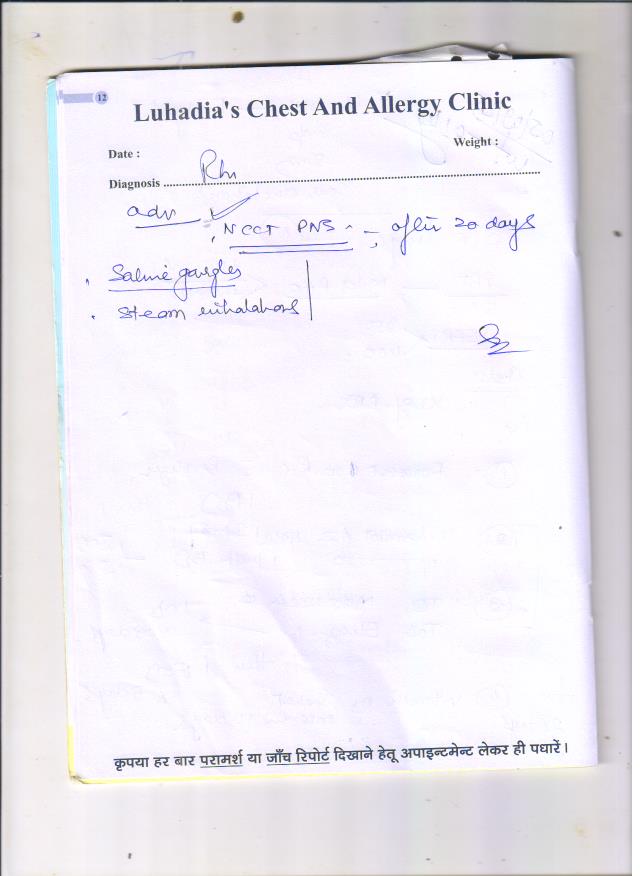 12
Luhadia's Chest And Allergy Clinic
Date :
Weight :
Diagnosis
adv
NCCT PNS - after 20 days
Saline gargles
Steam inhalations
कृपया हर बार परामर्श या जाँच रिपोर्ट दिखाने हेतू अपाइन्टमेन्ट लेकर ही पधारें।